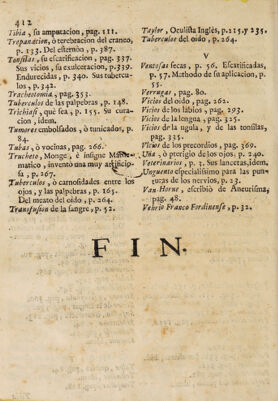 412
Tibia, su amputacion, pag. 111.
Trepanacion, ò terebracion del craneo,
p. 133. Del esternòn, p. 387.
Tonsilas, su escarificacion, pag. 337.
Sus vicios, su exulceracion, p. 339.
Endurecidas, p. 340. Sus tubercu-
los, p. 342.
Tracheotomia, pag. 353.
Tuberculos de las palpebras, p. 148.
Trichiasi, què sea, p. 155. Su cura-
cion, idem.
Tumores embolsados, ò tunicados, p.
84.
Tubas, ò vocinas, pag. 266.
Trucheto, Monge, è insigne Mathe-
matico, inventò una muy
, p. 267.
Tuberculos, ò carnosidades entre los
ojos, y las palpebras, p. 163.
Del meato del oìdo, p. 264.
Transfusion de la sangre, p. 52.
Taylor, Oculista Inglès, p. 215. y 235.
Tuberculos del oìdo, p. 264.
V
Ventosas secas, p. 56. Escarificadas,
p. 57. Methodo de su aplicacion,
p. 55.
Verrugas, pag. 80.
Vicios del oìdo, pag. 262.
Vicios de los labios, pag. 293.
Vicios de la lengua, pag. 325.
Vicios de la ugula, y de las tonsilas,
pag. 335.
Vicios de los precordios, pag. 369.
Una, ò pterigio de los ojos, p. 240.
Veterinarios, p. 3. Sus lancetas, idem.
Unguento especialissimo para las pun-
turas de los nervios, p. 23.
Van-Horne, escribiò de Aneurisma,
pag. 48.
Vehrio Franco Ferdinense, p. 32.
FIN.